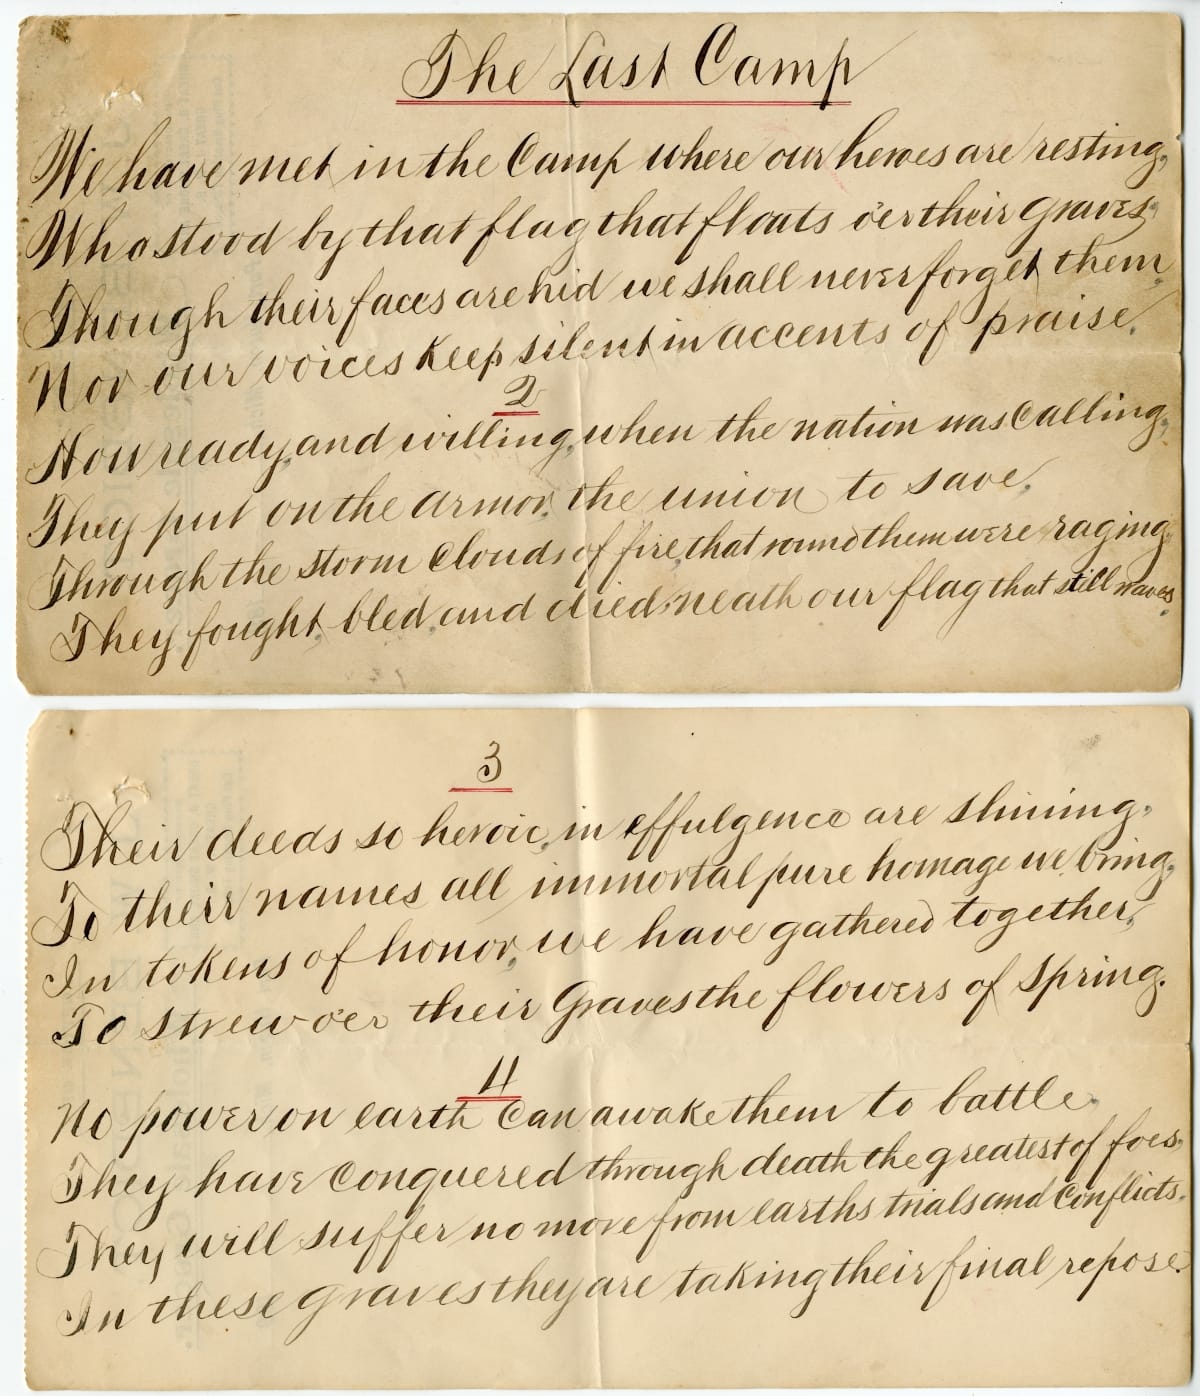 The Last Camp
We have met in the Camp where our heroes are resting,
Who stood by that flag that floats o'er their graves,
Though their faces are hid we shall never forget them,
Nor our voices keep silent in accents of praise.
2
How ready, and willing, when the nation was Calling,
They put on the armor, the union to save,
Through the storm Clouds of fire, that round them were raging,
They fought, bled, and died, neath our flag that still waves.
3
Their deeds so heroic, in effulgence are shining,
To their names all immortal pure homage we bring,
In tokens of honor, we have gathered together,
To strew o'er their Graves the flowers of Spring.
4
No power on earth Can awake them to battle,
They have Conquered through death the greatest of foes,
They will suffer no more from earths trials and Conflicts,
In these graves they are taking their final repose.